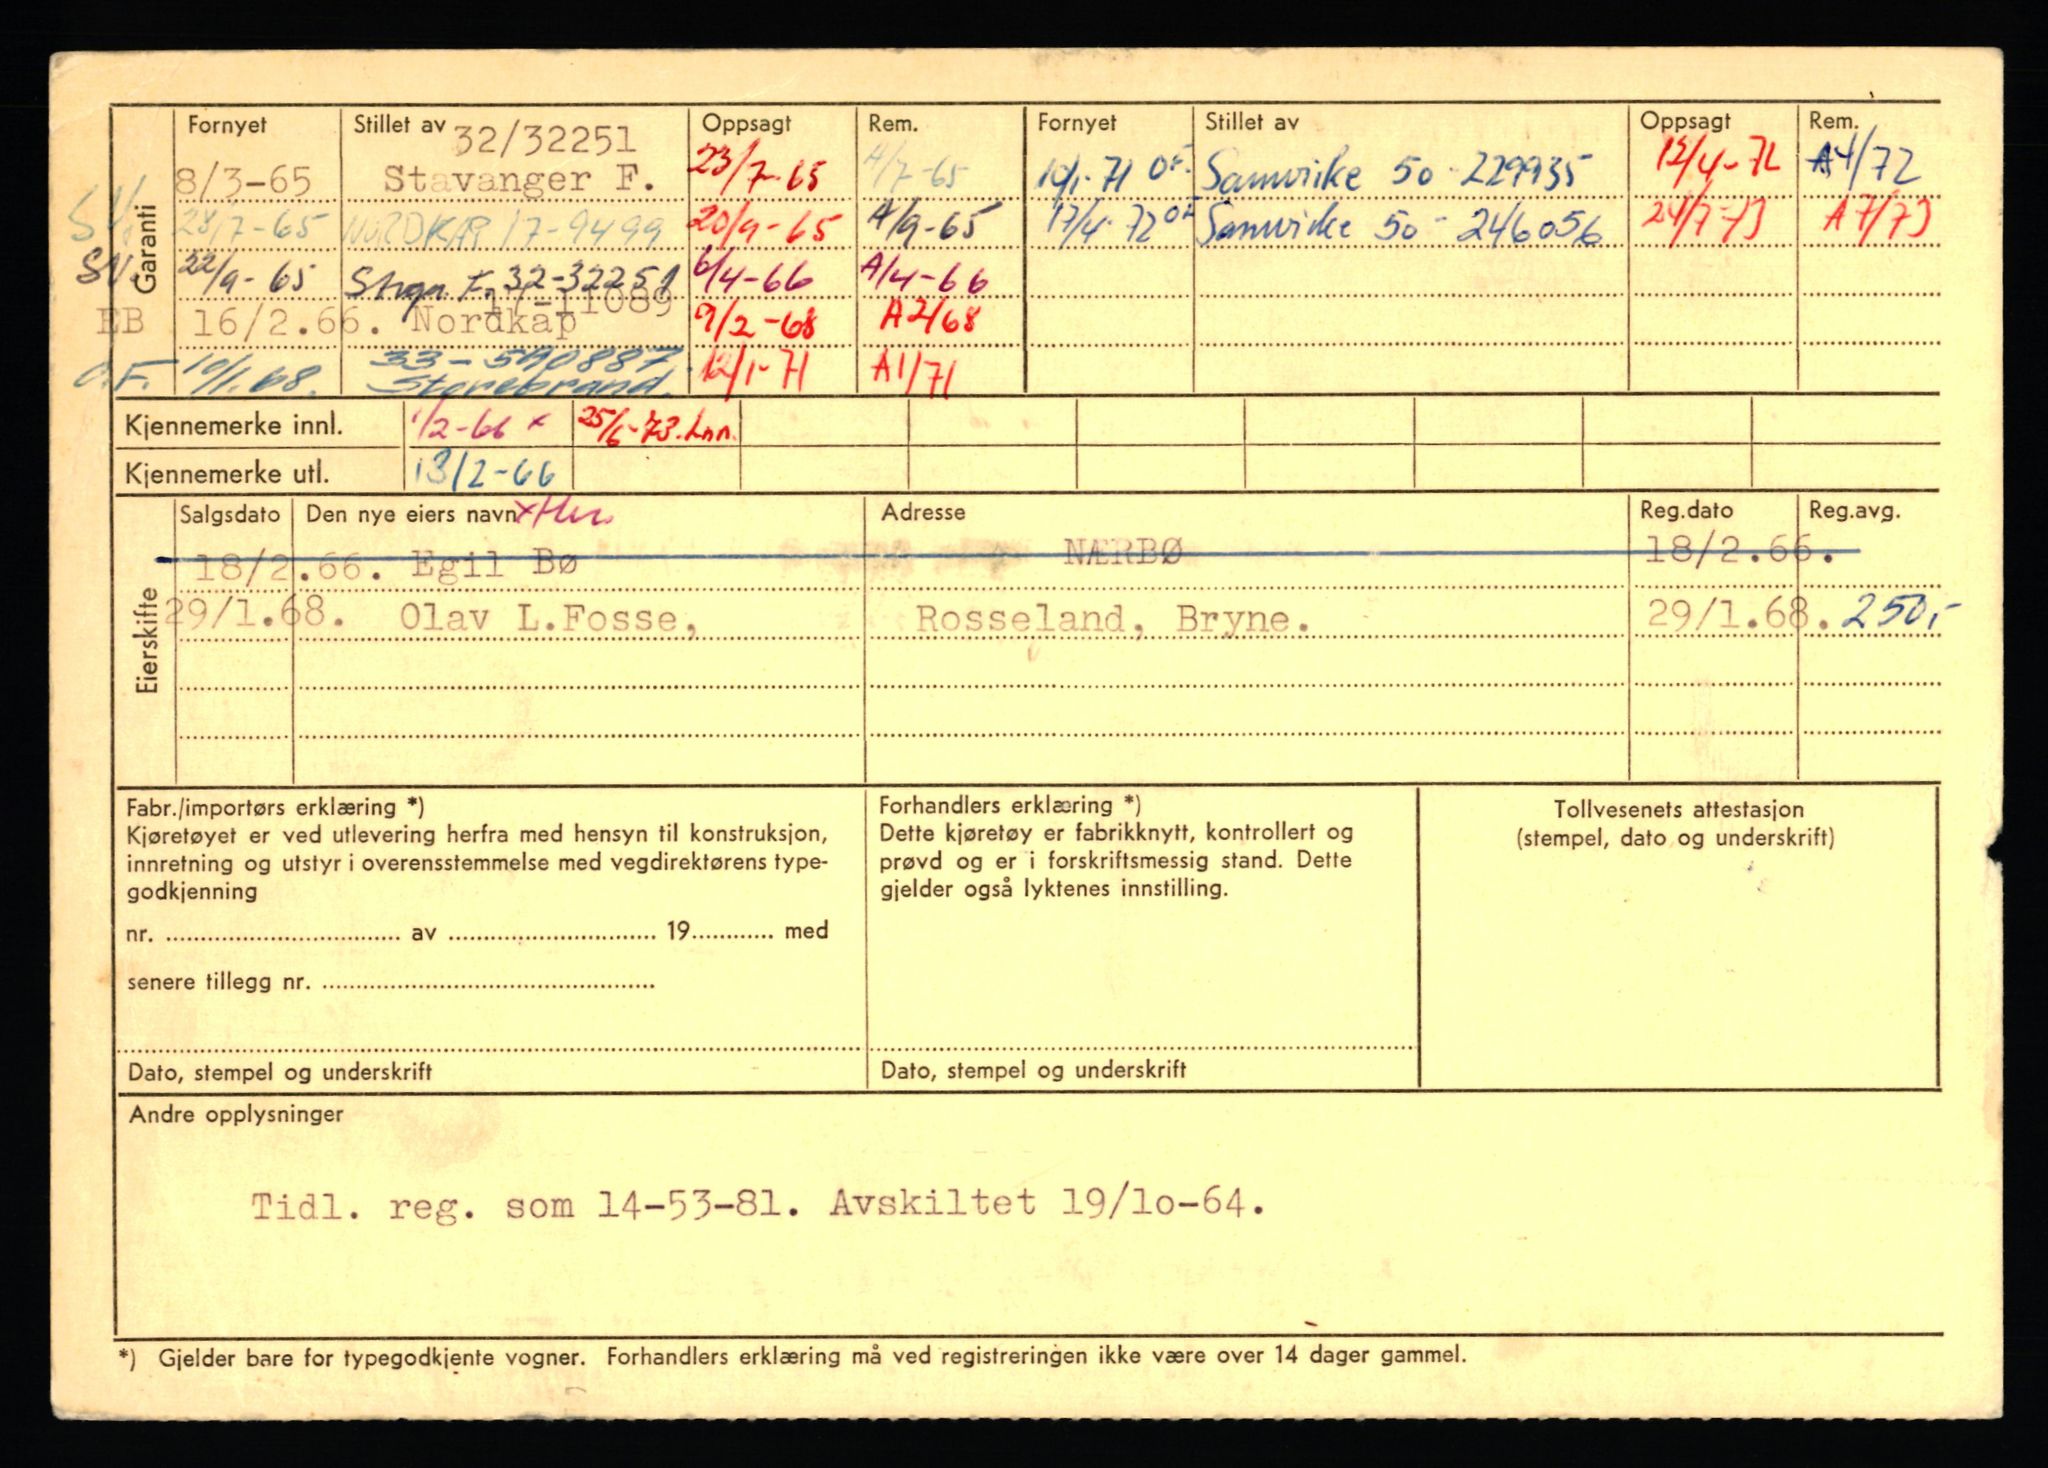 Fornyet Stillet av Oppsagt Rem. Fornyet Stillet av Oppsagt Rem.
32/32251
8/3-65 Stavanger F. 23/7-65 A/7-65 Samvirke 50-229935 A4/72
Garanti
23/7-65 NORDKAP 17-9499 20/9-65 A/9-65 17/4-72 OF Samvirke 50-246056 24/7-73 A7/73
SV. 22/9-65 32-32251 6/4-66 A/4-66
17-11089
EB 16/2.66. Nordkap 9/2-68 A2/68
O.F. 10/1.68. 33-590887 12/1-71 A1/71
Storebrand.
Kjennemerke innl. 1/2-66 x 25/6-73. Inn.
Kjennemerke utl. 18/2-66
Eierskifte
Salgsdato Den nye eiers navn Adresse Reg.dato Reg.avg.
18/2.66. Egil Bø NÆRBØ 18/2.66.
29/1.68. Olav L.Fosse, Rosseland, Bryne. 29/1.68. 250,-
Fabr./importørs erklæring *)
Kjøretøyet er ved utlevering herfra med hensyn til konstruksjon,
innretning og utstyr i overensstemmelse med vegdirektørens type-
godkjenning
nr. ........ av ........ 19........ med
senere tillegg nr. ........
Dato, stempel og underskrift
Forhandlers erklæring *)
Dette kjøretøy er fabrikknytt, kontrollert og
prøvd og er i forskriftsmessig stand. Dette
gjelder også lyktenes innstilling.
Dato, stempel og underskrift
Tollvesenets attestasjon
(stempel, dato og underskrift)
Andre opplysninger
Tidl. reg. som 14-53-81. Avskiltet 19/1o-64.
*) Gjelder bare for typegodkjente vogner. Forhandlers erklæring må ved registreringen ikke være over 14 dager gammel.